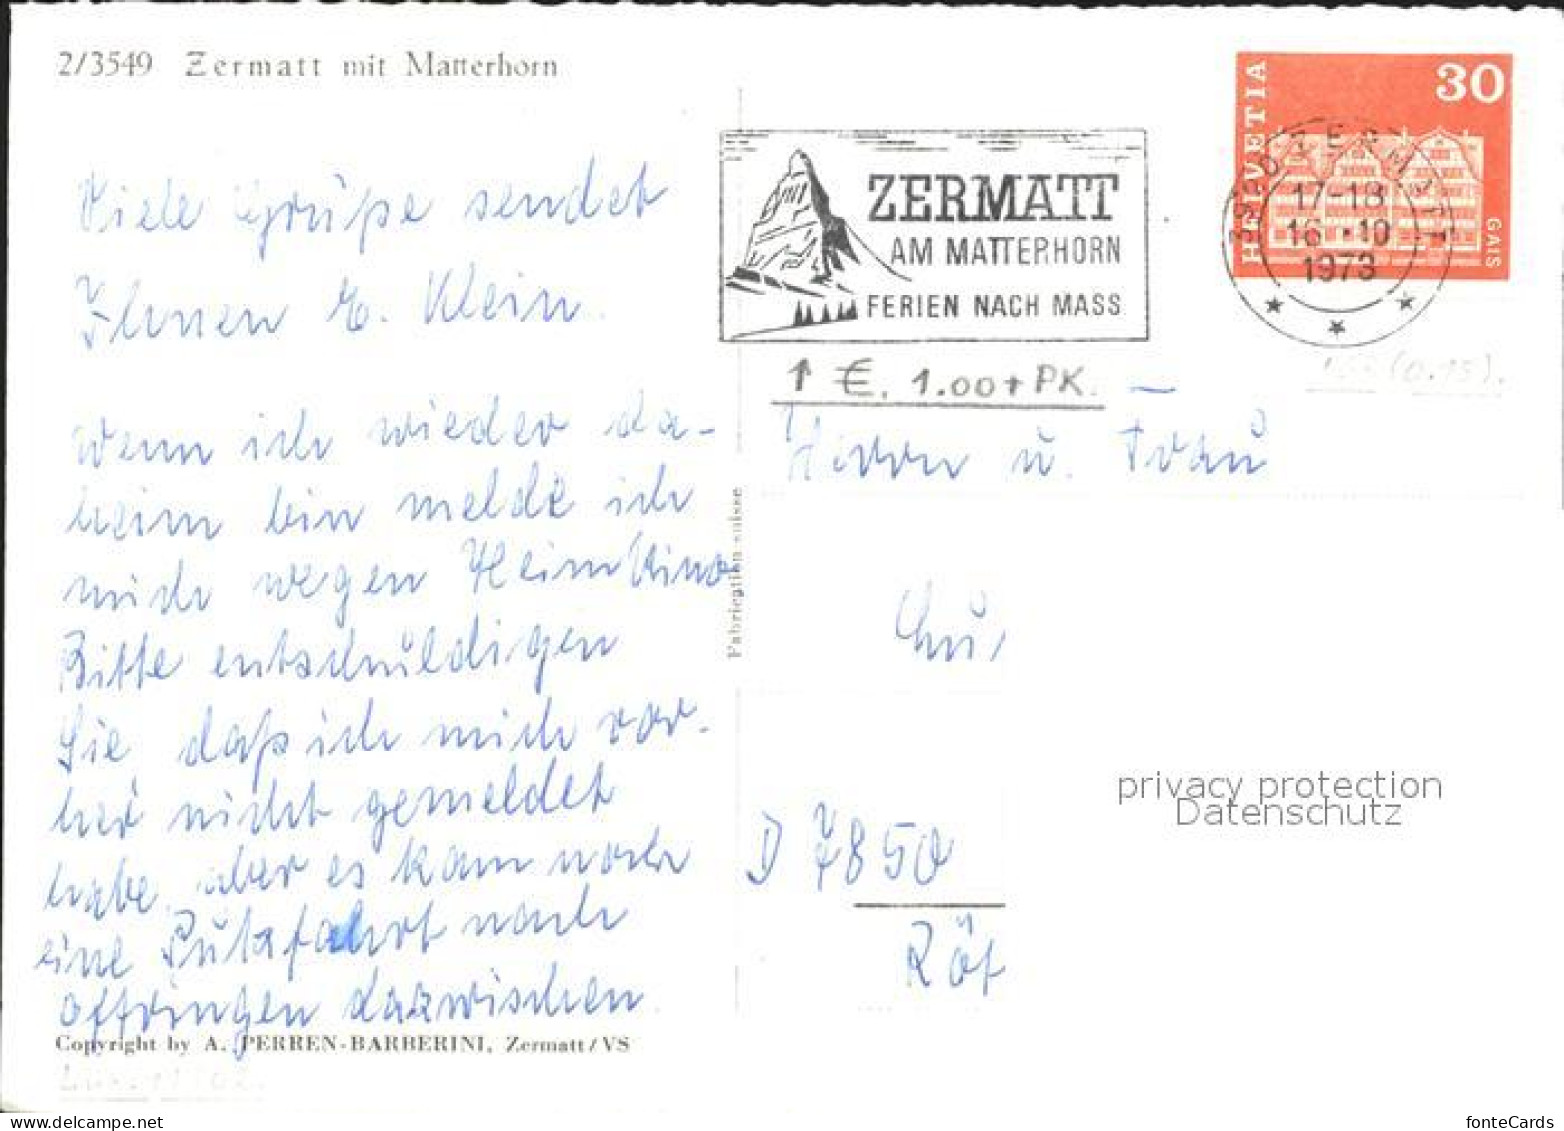 2/3549 Zermatt mit Matterhorn
Viele Grüße sendet
Ihnen E. Klein.
Wenn ich wieder da-
heim bin melde ich
mich wegen Heimkino
Bitte entschuldigen
Sie daß ich mich vor-
her nicht gemeldet
habe, aber es kam noch
eine nach
offringen dazwischen.
Copyright by A. PERREN-BARBERINI, Zermatt/VS
Fabrication suisse
ZERMATT
AM MATTERHORN
FERIEN NACH MASS
HELVETIA
30
GAIS
3920 ZERMATT
17-18
16.-10
1973
↑ €. 1.00 + PK.
(0.15).
Herrn u. Frau
D 7850
Röt
privacy protection
Datenschutz
www.delcampe.net
fonteCards